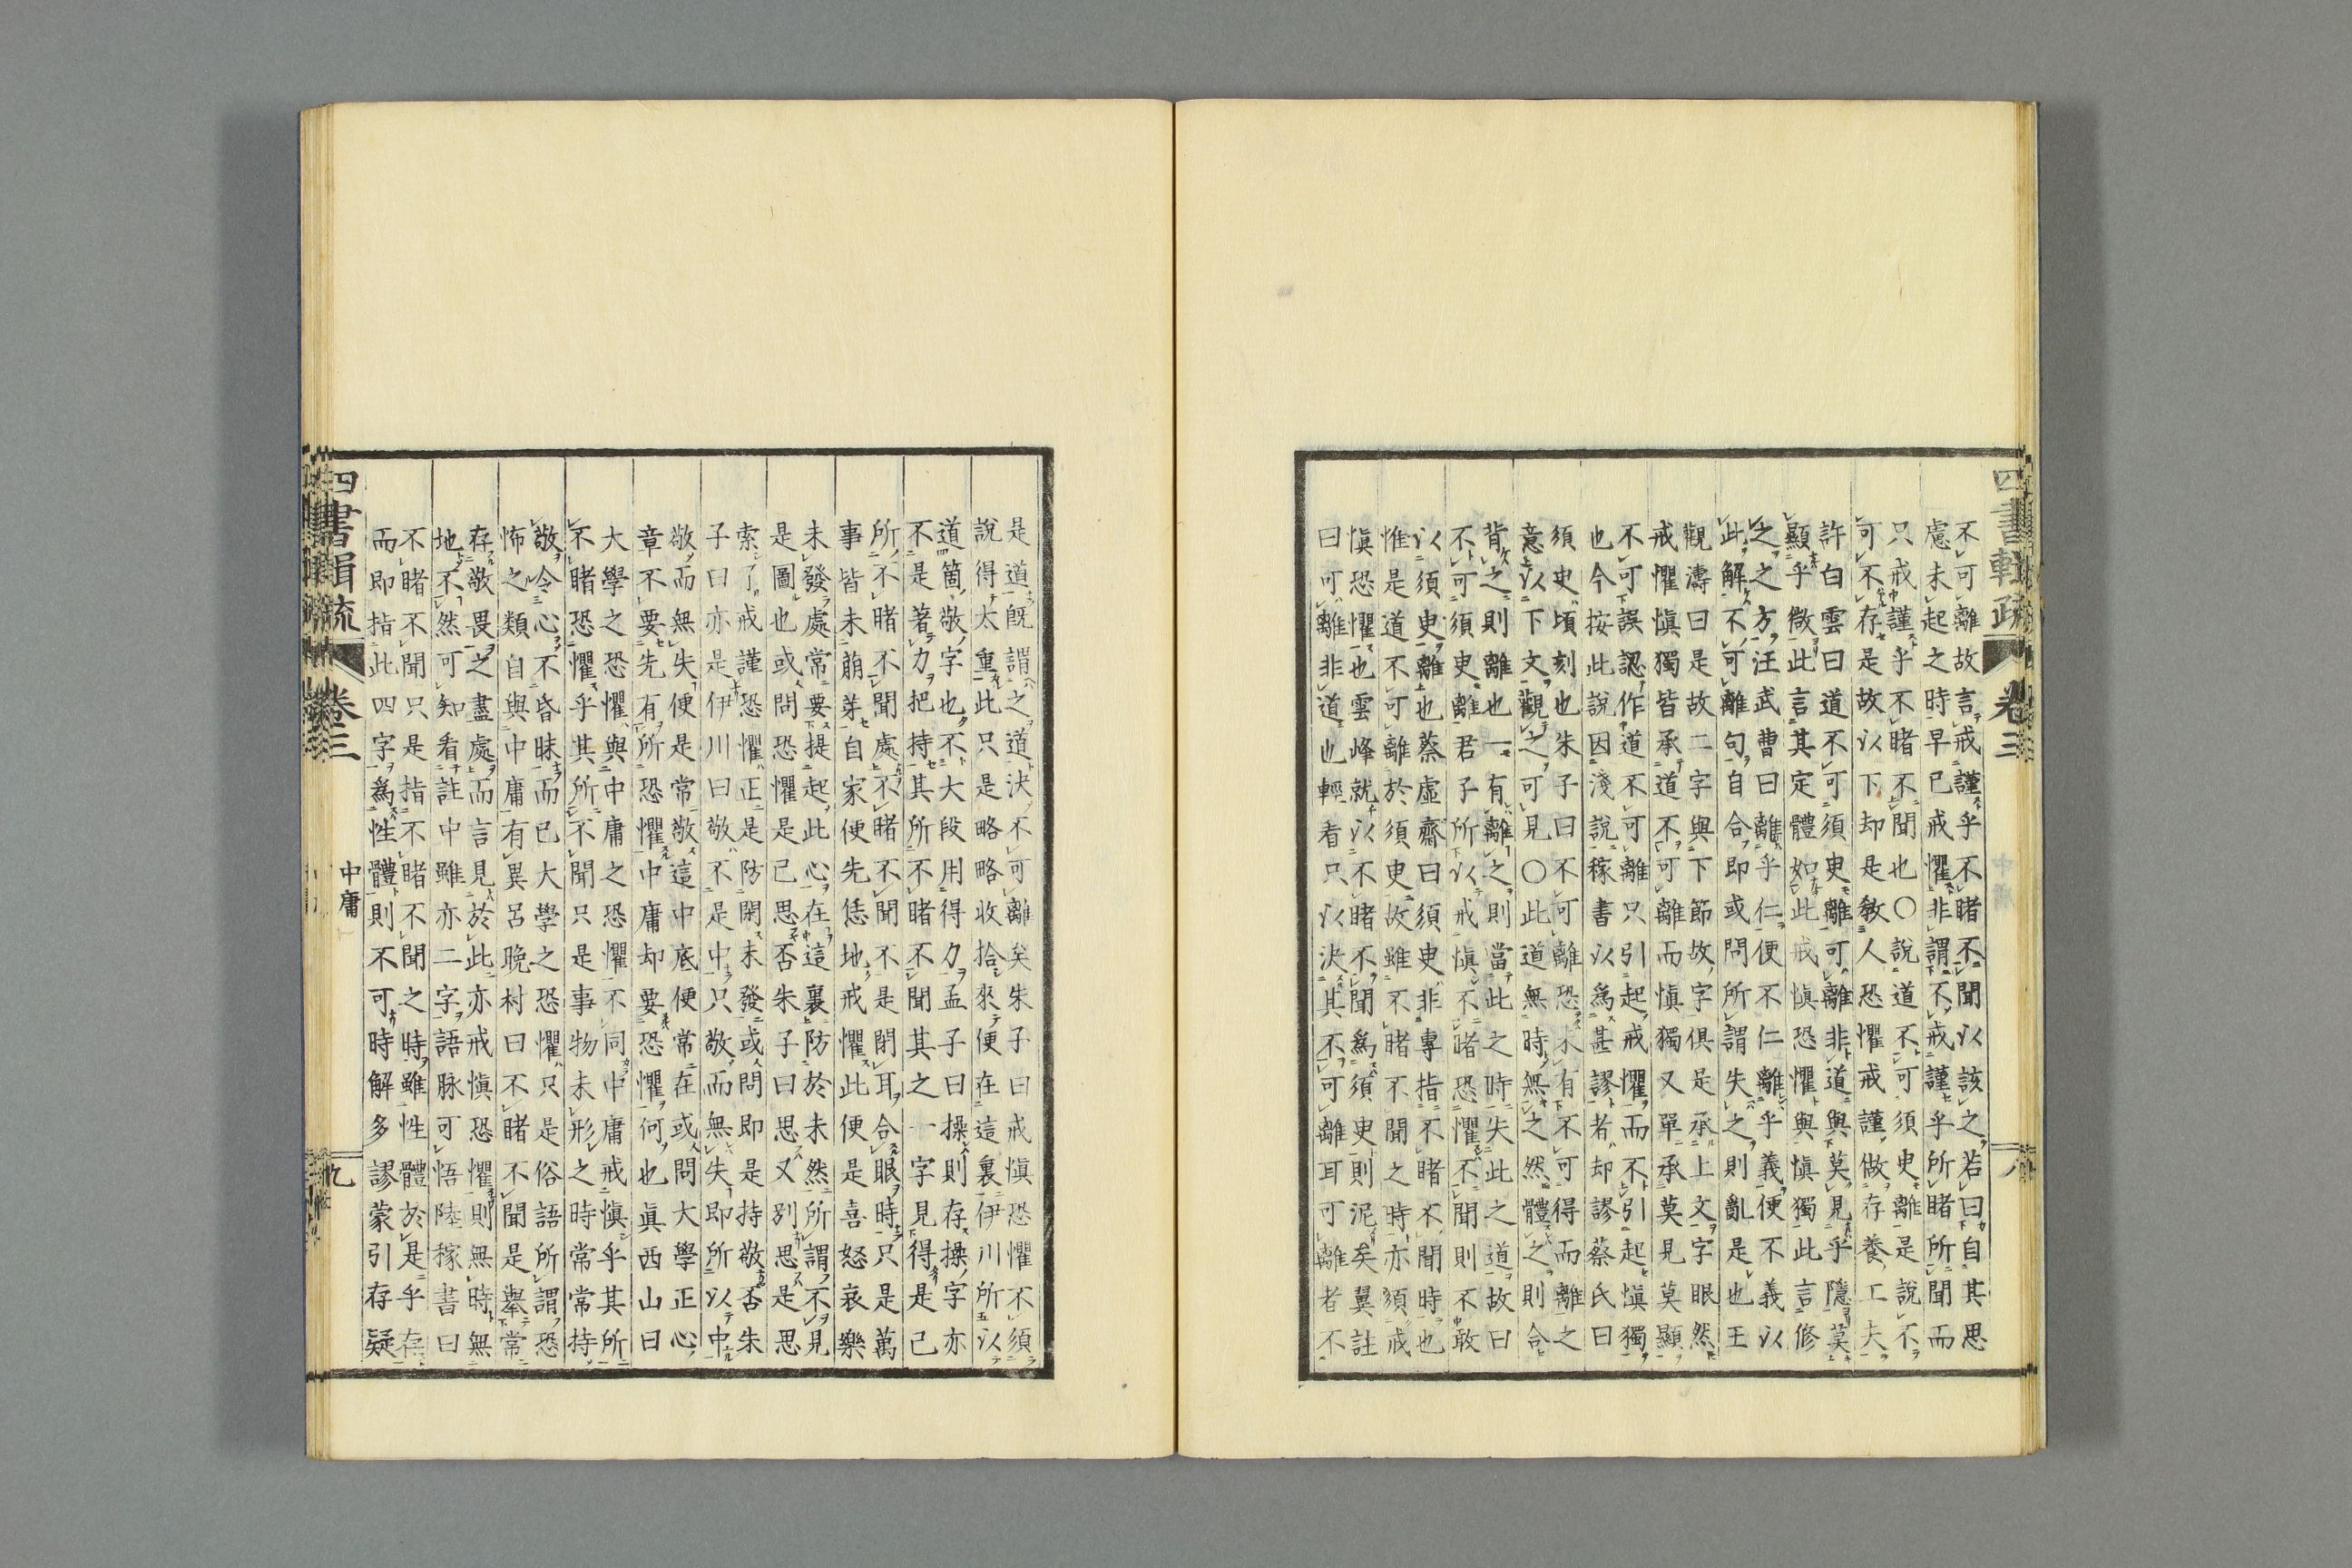 四書輯疏 卷三 八
不可離故言戒謹乎不睹不聞以該之若曰自其思
慮未起之時早已戒懼非謂不戒謹乎所睹所聞而
只戒謹乎不睹不聞也〇說道不可須臾離是說不
可不存是故以下却是敎人恐懼戒謹做存養工夫
許白雲曰道不可須臾離可離非道與莫見乎隱莫
顯乎微此言其定體如此戒愼恐懼與愼獨此言修
之之方汪武曹曰離乎仁便不仁離乎義便不義以
此解不可離句自合即或問所謂失之則亂是也王
觀濤曰是故二字與下節故字俱是承上文字眼然
戒懼愼獨皆承道不可離而愼獨又單承莫見莫顯
不可誤認作道不可離只引起戒懼而不引起愼獨
也今按此說因淺說稼書以爲甚謬者却謬蔡氏曰
須臾頃刻也朱子曰不可離恐未有不可得而離之
意以下文觀之可見〇此道無時無之然體之則合
背之則離也一有離之則當此之時失此之道故曰
不可須臾離君子所以戒愼不睹恐懼不聞則不敢
以須臾離也蔡虛齋曰須臾非專指不睹不聞時也
惟是道不可離於須臾故雖不睹不聞之時亦須戒
愼恐懼也雲峰就以不睹不聞爲須臾則泥矣翼註
曰可離非道也輕看只以決其不可離耳可離者不
是道旣謂之道決不可離矣朱子曰戒愼恐懼不須
說得太重此只是略略收拾來便在這裏伊川所以
道箇敬字也不大段用得力孟子曰操則存操字亦
不是著力把持其所不睹不聞其之一字見得是己
所不睹不聞處不睹不聞不是閉耳合眼時只是萬
事皆未萠芽自家便先恁地戒懼此便是喜怒哀樂
未發處常要提起此心在這裏防於未然所謂不見
是圖也或問恐懼是已思否朱子曰思又別思是思
索了戒謹恐懼正是防閑未發或問即是持敬否朱
子曰亦是伊川曰敬不是中只敬而無失即所以中
敬而無失便是常敬這中底便常在或問大學正心
章不要先有所恐懼中庸却要恐懼何也眞西山曰
大學之恐懼與中庸之恐懼不同中庸戒愼乎其所
不睹恐懼乎其所不聞只是事物未形之時常常持
敬令心不昏昧而已大學之恐懼只是俗語所謂恐
怖之類自與中庸有異呂晚村曰不睹不聞是擧常
存敬畏之盡處而言見於此亦戒愼恐懼則無時無
地不然可知看註中雖亦二字語脉可悟陸稼書曰
不睹不聞只是指不睹不聞之時雖性體於是乎存
而即指此四字爲性體則不可時解多謬蒙引存疑
四書輯疏 卷三 中庸 九